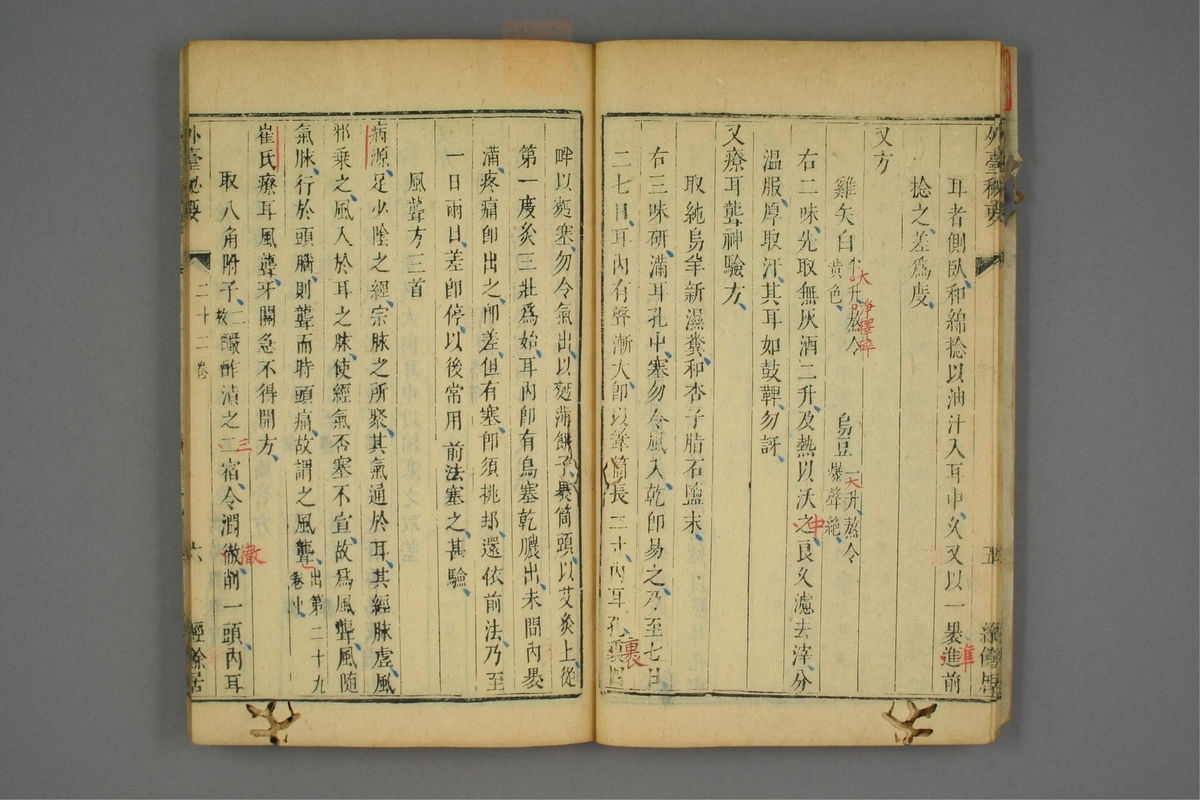 外臺秘要
耳者側臥和綿捻以油汁入耳中久又以一裹進前
準
捻之差為度
又方
雞矢白半升熬令黃色 烏豆一升熬令爆聲絶
大 淨擇碎
大
右二味先取無灰酒二升及熱以沃之良久濾去滓分
中
溫服厚取汗其耳如鼓鞞勿訝
又療耳聾神驗方
取純烏羊新濕糞和杏子脂石鹽末
右三味研滿耳孔中塞勿令風入乾即易之乃至七日
二七日耳內有聲漸大即以葦筒長二寸內耳孔裹四
裏
畔以麪塞勿令氣出以麪薄餅子裹筒頭以艾灸上從
第一度灸三壯為始耳內即有烏塞乾膿出未間內裹
滿疼痛即出之即差但有塞即須挑却還依前法乃至
一日兩日差即停以後常用前法塞之甚驗
風聾方三首
病源足少陰之經宗脉之所聚其氣通於耳其經脉虛風
邪乗之風入於耳之脉使經氣否塞不宣故為風聾風隨
氣脉行於頭腦則聾而時頭痛故謂之風聾出第二十九卷中
崔氏療耳風聾牙關急不得開方
取八角附子二枚釅酢漬之二宿令潤徹削一頭內耳
三
徹
外臺秘要
二十二卷
六
經餘居